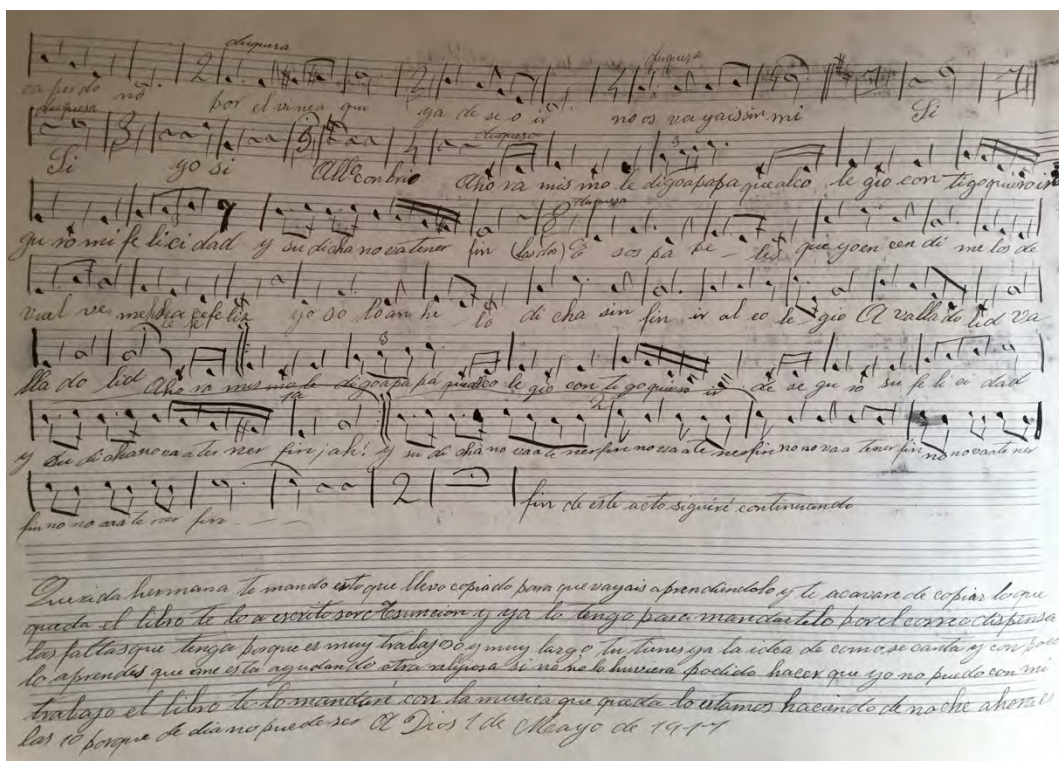 duquesa duquesa
ca per do no por el vinea que ya de se o ir no os va yais sin mi Si
duquesa duquesa
Si yo si All° con brio Aho ra mis mo le digo a papa que al co le gio con tigo quiero ir
duquesa
gu ro mi fe li ci dad y su dicha no va a tener fin (las dos) E sos pa pe les que yo en cen di me los de
vuel ves me hace feliz yo so lo an he lo di cha sin fin ir al co le gio A valla do lid va
lla do lid Aho ra mis mo le digo a papá que al co le gio con ti go quiero ir de se gu ro su fe li ci dad
1a 2
y su di cha no va a te ner fin ¡ah! y su di cha no va a te ner fin no va a te ner fin no no va a tener fin no no va a te ner
fin no no va a te ner fin fin de este acto siguiré continuando
Querida hermana te mando esto que llevo copiado para que vayais aprendiendolo y te acavare de copiar lo que
queda el libro te lo a escrito sor Asuncion y ya lo tengo para mandartelo por el correo dispensa
las faltas que tenga porque es muy trabajoso y muy largo, tu tienes ya la idea de como se canta y con poco
lo aprendes que me esta ayudando otra religiosa si no no lo huviera podido hacer que yo no puedo con mi
trabajo el libro te lo mandaré con la musica que queda lo estamos haciendo de noche ahora es
las 10 porque de dia no puede ser A Dios 1 de Mayo de